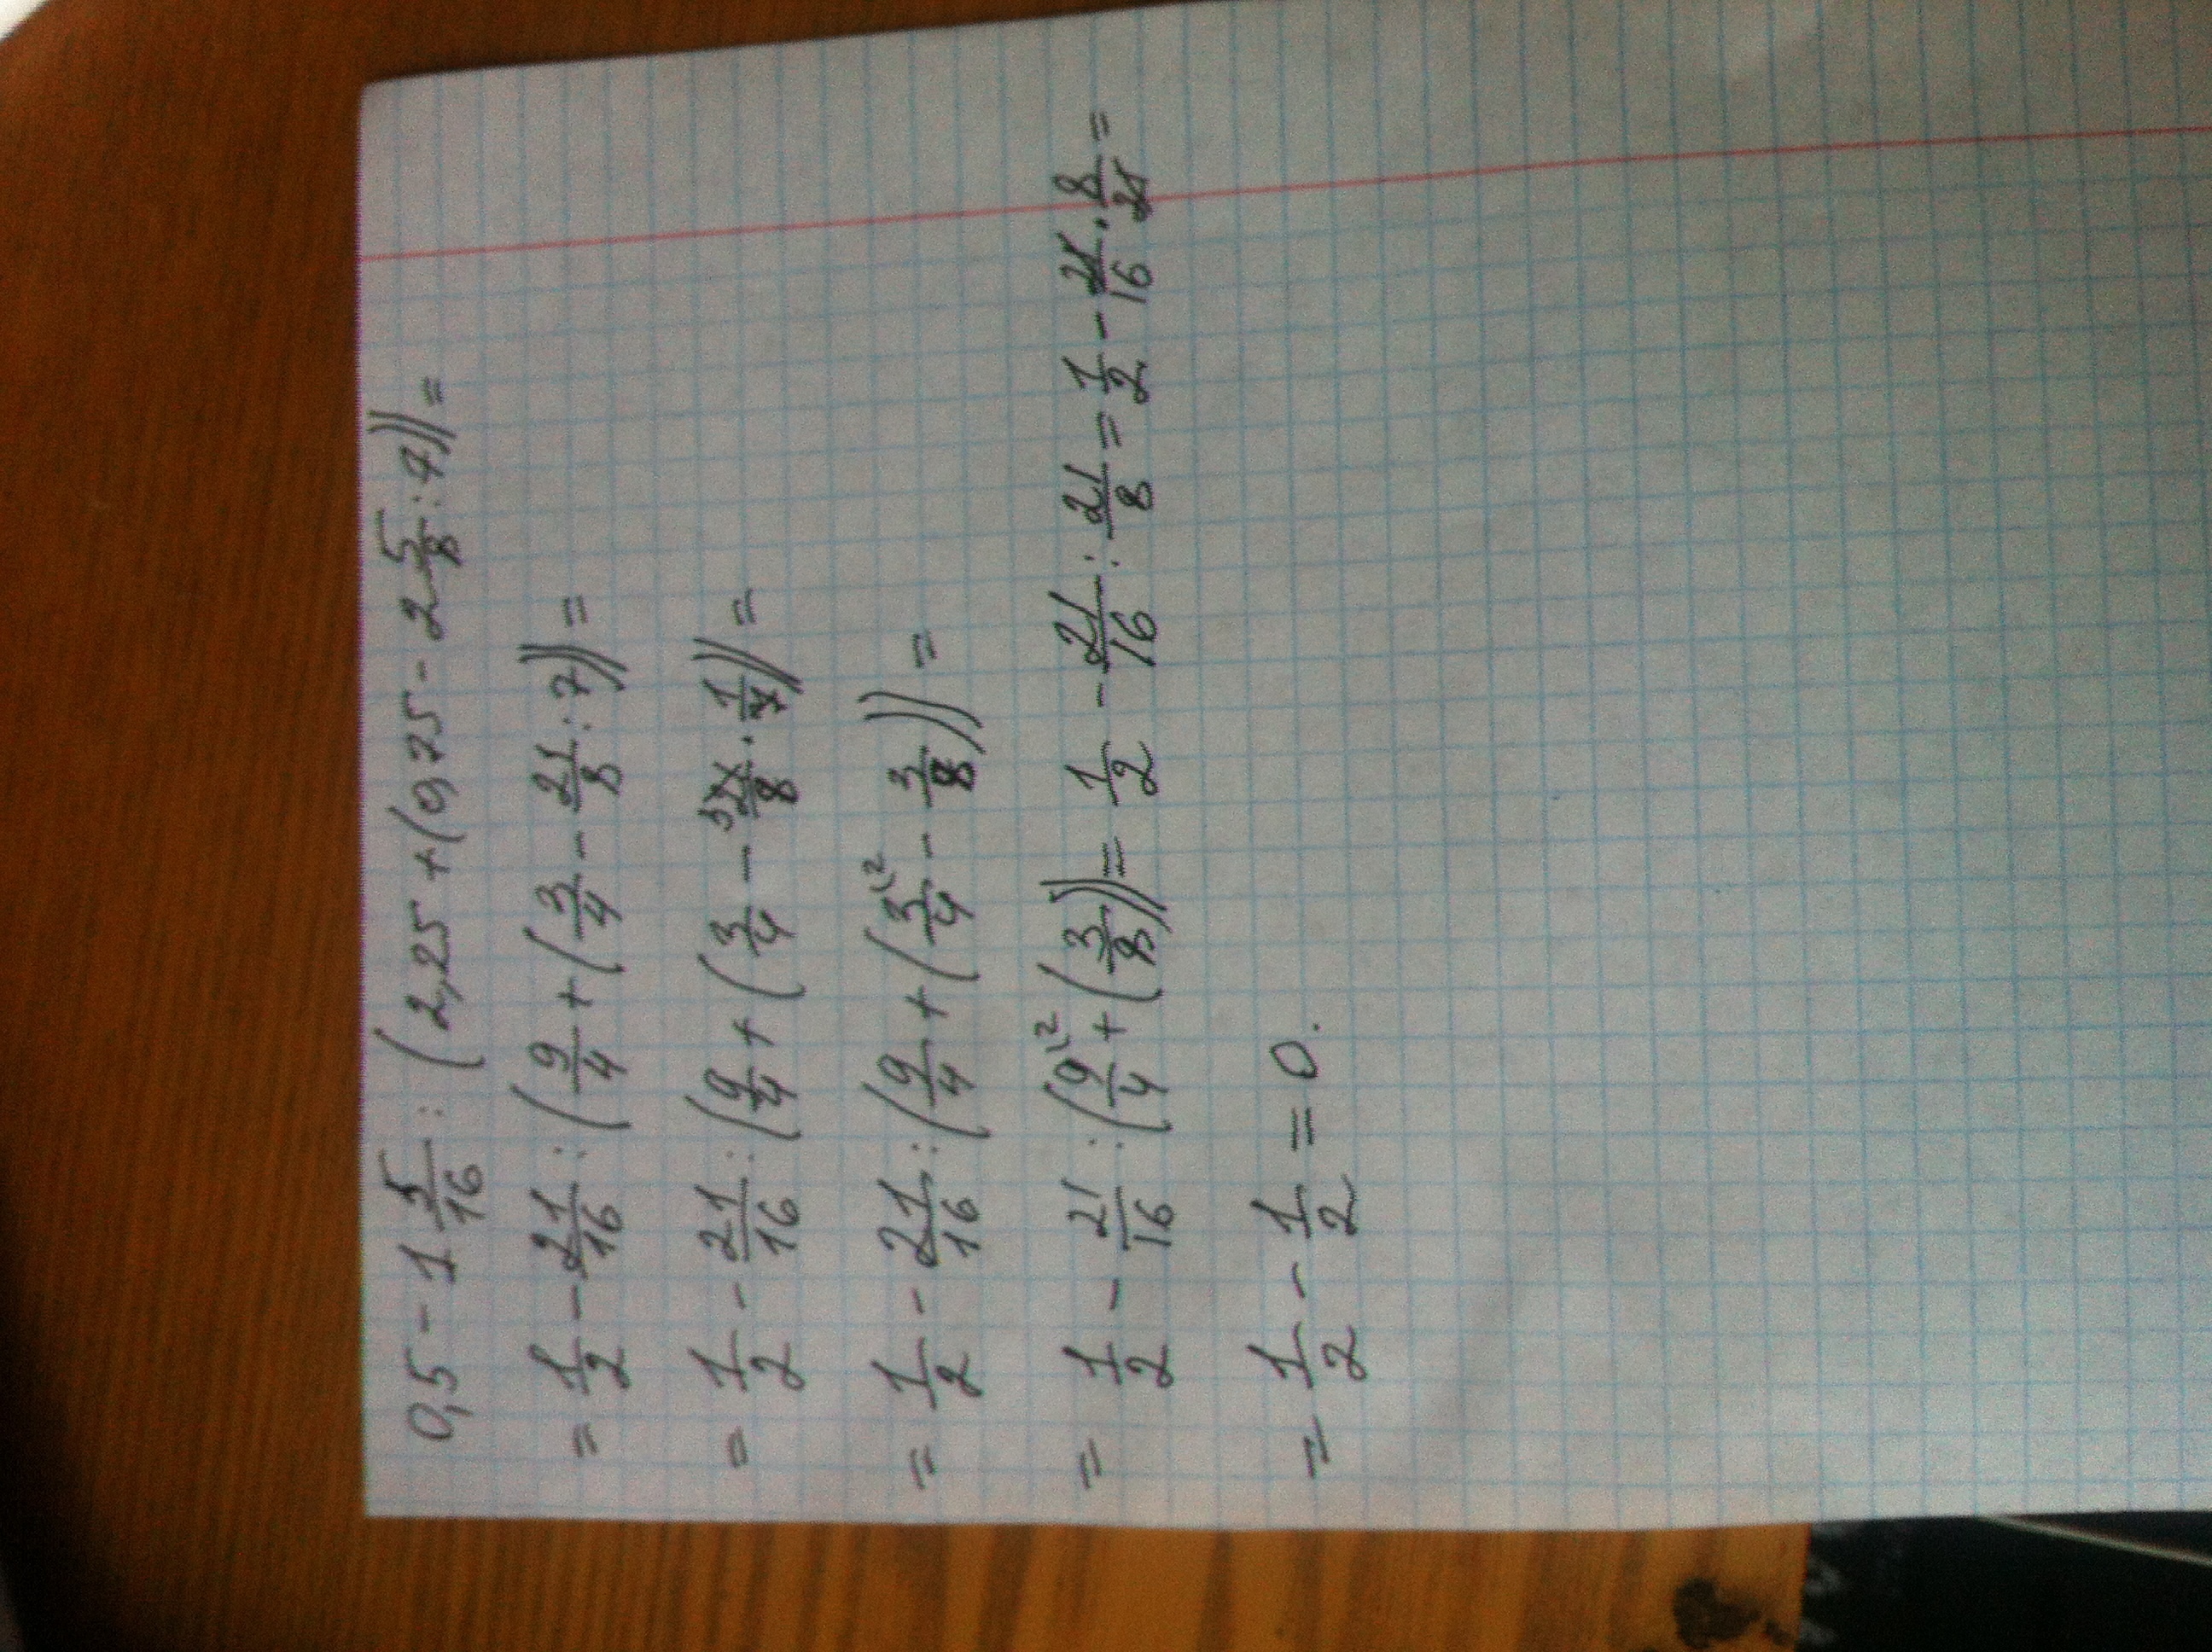 0,5 - 1 5/16 : (2,25 + (0,75 - 2 5/8 : 7)) =
= 1/2 - 21/16 : (9/4 + (3/4 - 21/8 : 7)) =
= 1/2 - 21/16 : (9/4 + (3/4 - 3 21/8 · 1/7)) =
= 1/2 - 21/16 : (9/4 + (3/4 \2 - 3/8)) =
= 1/2 - 21/16 : (9/4 \2 + (3/8)) = 1/2 - 21/16 : 21/8 = 1/2 - 21/16 · 8/21 =
= 1/2 - 1/2 = 0.